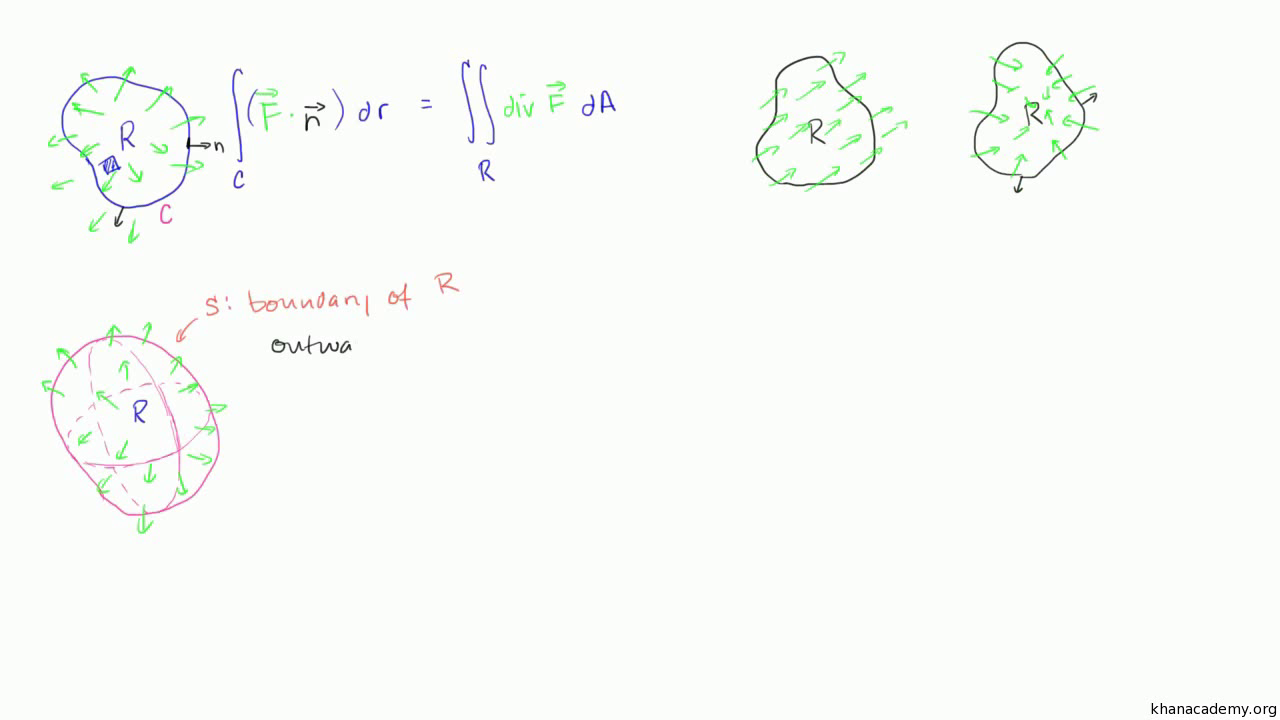 R
n
C
∫_C (F⃗ · n⃗) dr = ∬_R div F⃗ dA
R
R
S: boundary of R
outwa
R
khanacademy.org